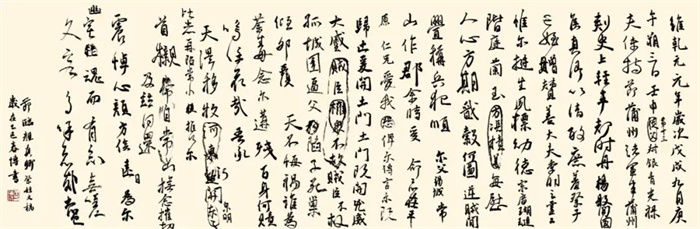 維乾元元年歲次戊戌九月庚
午朔三日壬申第十三叔銀青光祿
夫使持節蒲州諸軍事蒲州
刺史上輕車都尉丹楊縣開國
侯真卿以清酌庶羞祭于
亡姪贈贊善大夫季明之靈曰
惟爾挺生夙標幼德宗廟瑚璉
階庭蘭玉每慰
人心方期戩穀何圖逆賊間
釁稱兵犯順爾父竭誠常
山作郡余時受命亦在平
原仁兄愛我俾爾傳言爾既
歸止爰開土門土門既開兇威
大蹙賊臣擁眾不救賊臣不救
孤城圍逼父陷子死巢
傾卵覆天不悔禍誰為
荼毒念爾遘殘百身何贖
嗚呼哀哉吾承
天澤移牧河關泉明
比者再陷常山攜爾
首櫬及茲同還撫念摧切
震悼心顏方俟遠日爾
幽宅魂而有知無嗟
久客嗚呼哀哉尚饗
節臨顏真卿祭姪文稿